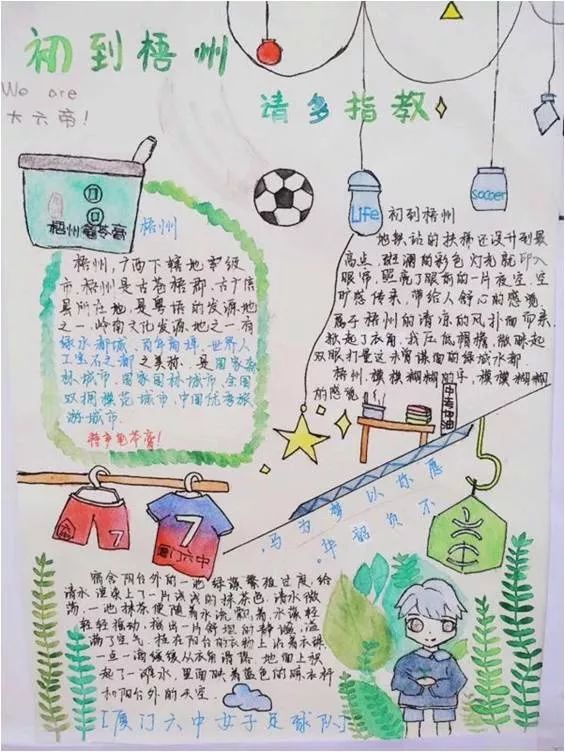 初到梧州
We are
大六帝！
请多指教
梧州龟苓膏
梧州
梧州，广西下辖地宰级
市，梧州是古苍梧郡、古广信
县所在地，是粤语的发源地
之一，岭南文化发源地之一，有
绿水都城、百年商埠、世界人
工宝石之都之美称，是国家森
林城市、国家园林城市、全国
双拥模范城市、中国优秀旅
游城市.
特多龟苓膏！
Life
soccer
初到梧州
地铁站的扶梯还没升到最
高点，斑斓的彩色灯光就印入
眼帘，照亮了眼前的一片夜空，空
旷感传来，带给人舒心的感觉.
属于梧州的清凉的风扑面而来.
掀起了衣角，我压低帽檐，微眯起
双眼打量这未曾谋面的绿城水都.
梧州，模模糊糊的乎，模模糊糊
的感觉
中考加油
以梦为马
不负韶华
7
7
厦门六中
宿舍阳台外的一池绿藻繁殖过度，给
清水渲染上了一片浅浅的抹茶色.清水微
荡，一池抹茶便随着水流飘着，水藻轻
轻摇动，摇出一片舒坦的静谧，溢
满了空气，挂在阳台的衣物上沾着水珠，
一点一滴缓缓从衣角滑落，地面上积
起了一滩水，里面映着蓝色的晾衣杆
和阳台外的天空.
[厦门六中女子足球队]